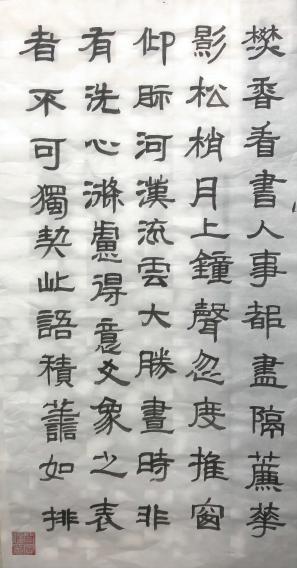 樊香看書人事都盡隔薕華
影松梢月上鐘聲忽度推窗
仰眎河漢流雲大勝晝時非
有洗心滌慮得意爻象之表
者不可獨契此語積如排